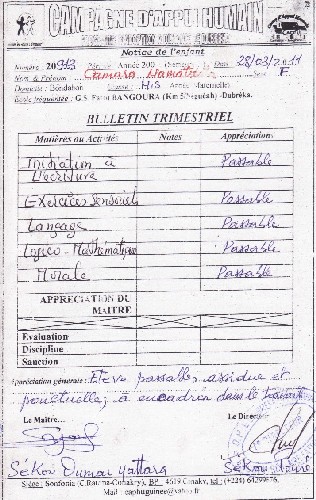 CAMPAGNE D'APPUI HUMAIN
Notice de l'enfant
Numéro: 20913 Année 200 Date 28/03/2011
Nom & Prénom: Camara Sexe F
Domicile: Bondabon Classe: Année -Maternelle
Ecole fréquentée: G.S. BANGOURA -Dubréka.
BULLETIN TRIMESTRIEL
Matières ou Activités Notes Appréciations
Initiation à L'écriture Passable
Exercices Sensoriel Passable
Langage Passable
Logico-Mathématique Passable
Morale Passable
APPRECIATION DU MAITRE
Evaluation
Discipline
Sanction
Appréciation générale: Elève passable, assidue et
ponctuelle, à encadrer dans le travail
Le Maître... Le Direct
Sékou Oumar Yattara Sékou
Siège: Sonfonia (C.Ratoma-Conakry), BP 4619 Cnaky, tel: (+224) 64299876.
Mail: caphuguinee@yahoo.fr